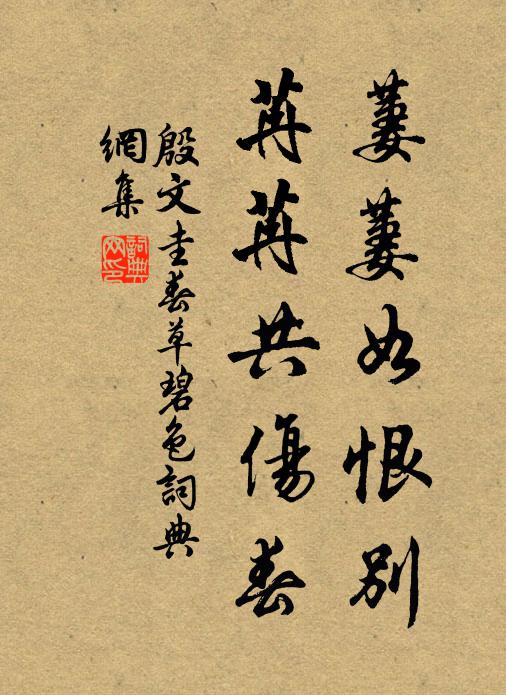 萋萋如恨別
苒苒共傷春
殷文圭春草碧色詞典
網集
詞典
网印